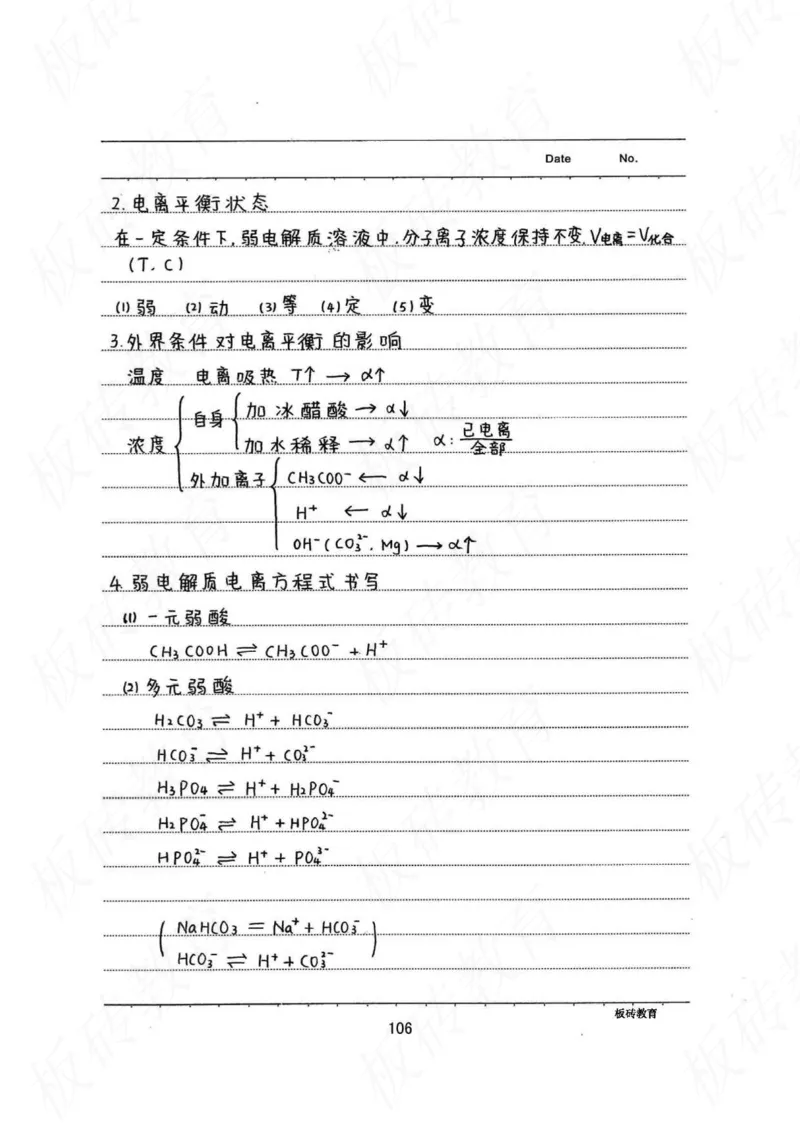 Date No.
2.电离平衡状态
在一定条件下,弱电解质溶液中,分子离子浓度保持不变,V电离=V化合
(T.C)
(1)弱 (2)动 (3)等 (4)定 (5)变
3.外界条件对电离平衡的影响
温度 电离吸热 T↑ → α↑
浓度
自身
加冰醋酸 → α↓
加水稀释 → α↑ α: 已电离/全部
外加离子
CH₃COO⁻ ← α↓
H⁺ ← α↓
OH⁻(CO₃²⁻, Mg) → α↑
4.弱电解质电离方程式书写
(1)一元弱酸
CH₃COOH ⇌ CH₃COO⁻ + H⁺
(2)多元弱酸
H₂CO₃ ⇌ H⁺ + HCO₃⁻
HCO₃⁻ ⇌ H⁺ + CO₃²⁻
H₃PO₄ ⇌ H⁺ + H₂PO₄⁻
H₂PO₄⁻ ⇌ H⁺ + HPO₄²⁻
HPO₄²⁻ ⇌ H⁺ + PO₄³⁻
(NaHCO₃ = Na⁺ + HCO₃⁻
HCO₃⁻ ⇌ H⁺ + CO₃²⁻)
板砖教育
106